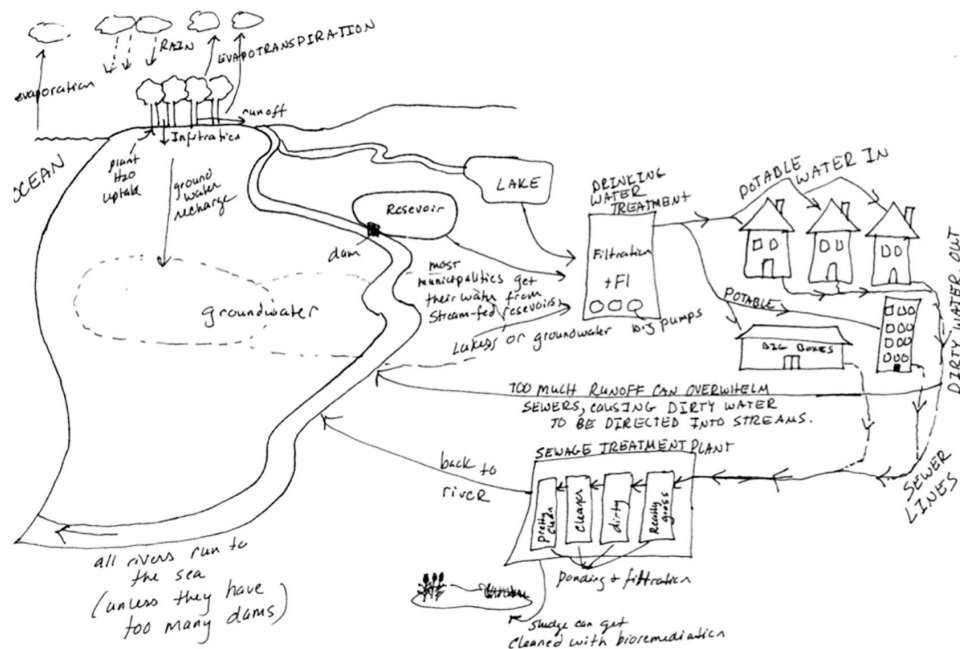 RAIN
EVAPOTRANSPIRATION
evaporation
runoff
Infiltration
OCEAN
plant
H2O
uptake
ground
water
recharge
LAKE
Resevoir
dam
groundwater
most
municipalities get
their water from
Stream-fed reservoirs,
Lakes or groundwater
DRINKING
WATER
TREATMENT
Filtration
+Fl
big pumps
POTABLE
WATER IN
POTABLE
BIG BOXES
DIRTY WATER OUT
TOO MUCH RUNOFF CAN OVERWHELM
SEWERS, CAUSING DIRTY WATER
TO BE DIRECTED INTO STREAMS.
SEWER
LINES
SEWAGE TREATMENT PLANT
pretty clean
cleaner
dirty
Really gross
back to
river
ponding + filtration
sludge can get
cleaned with bioremediation
all rivers run to
the sea
(unless they have
too many dams)